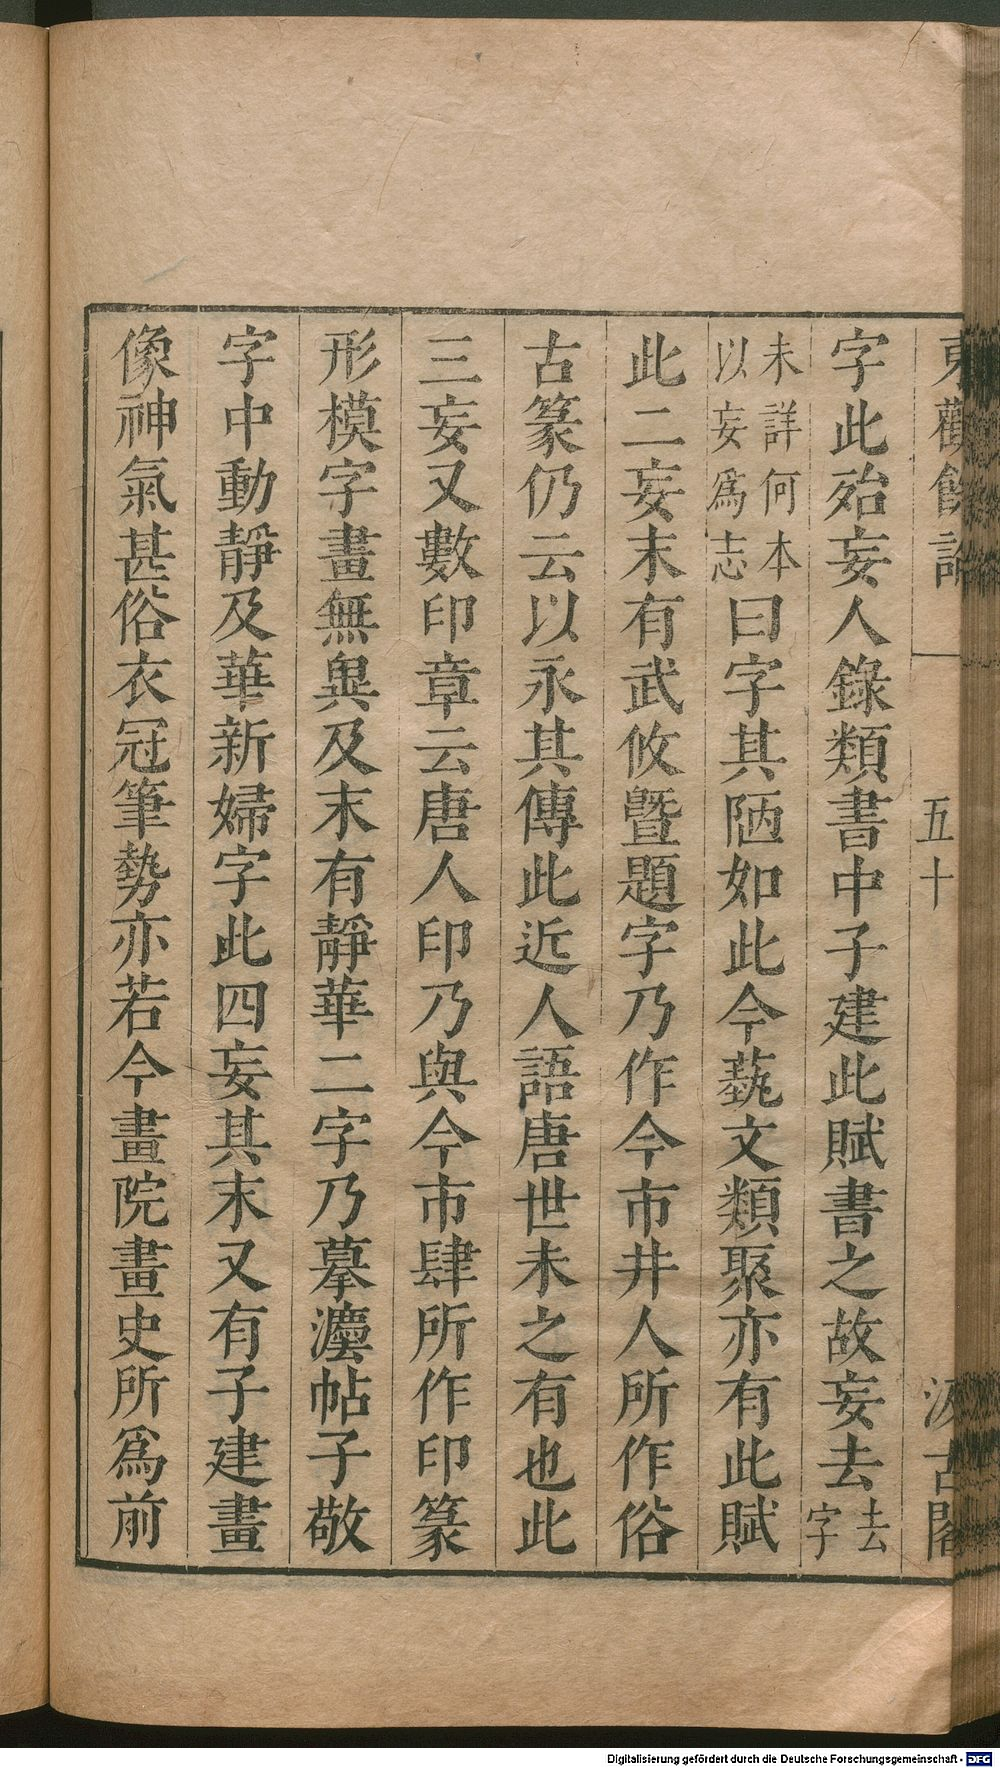 東觀餘論
五十
汲古閣
字此殆妄人錄類書中子建此賦書之故妄去去字
未詳何本以妄爲志曰字其陋如此今蓺文類聚亦有此賦
此二妄末有武攸曁題字乃作今市井人所作俗
古篆仍云以永其傳此近人語唐世未之有也此
三妄又數印章云唐人印乃與今市肆所作印篆
形模字畫無異及末有靜華二字乃摹瀍帖子敬
字中動靜及華新婦字此四妄其末又有子建畫
像神氣甚俗衣冠筆勢亦若今畫院畫史所爲前
Digitalisierung gefördert durch die Deutsche Forschungsgemeinschaft - DFG